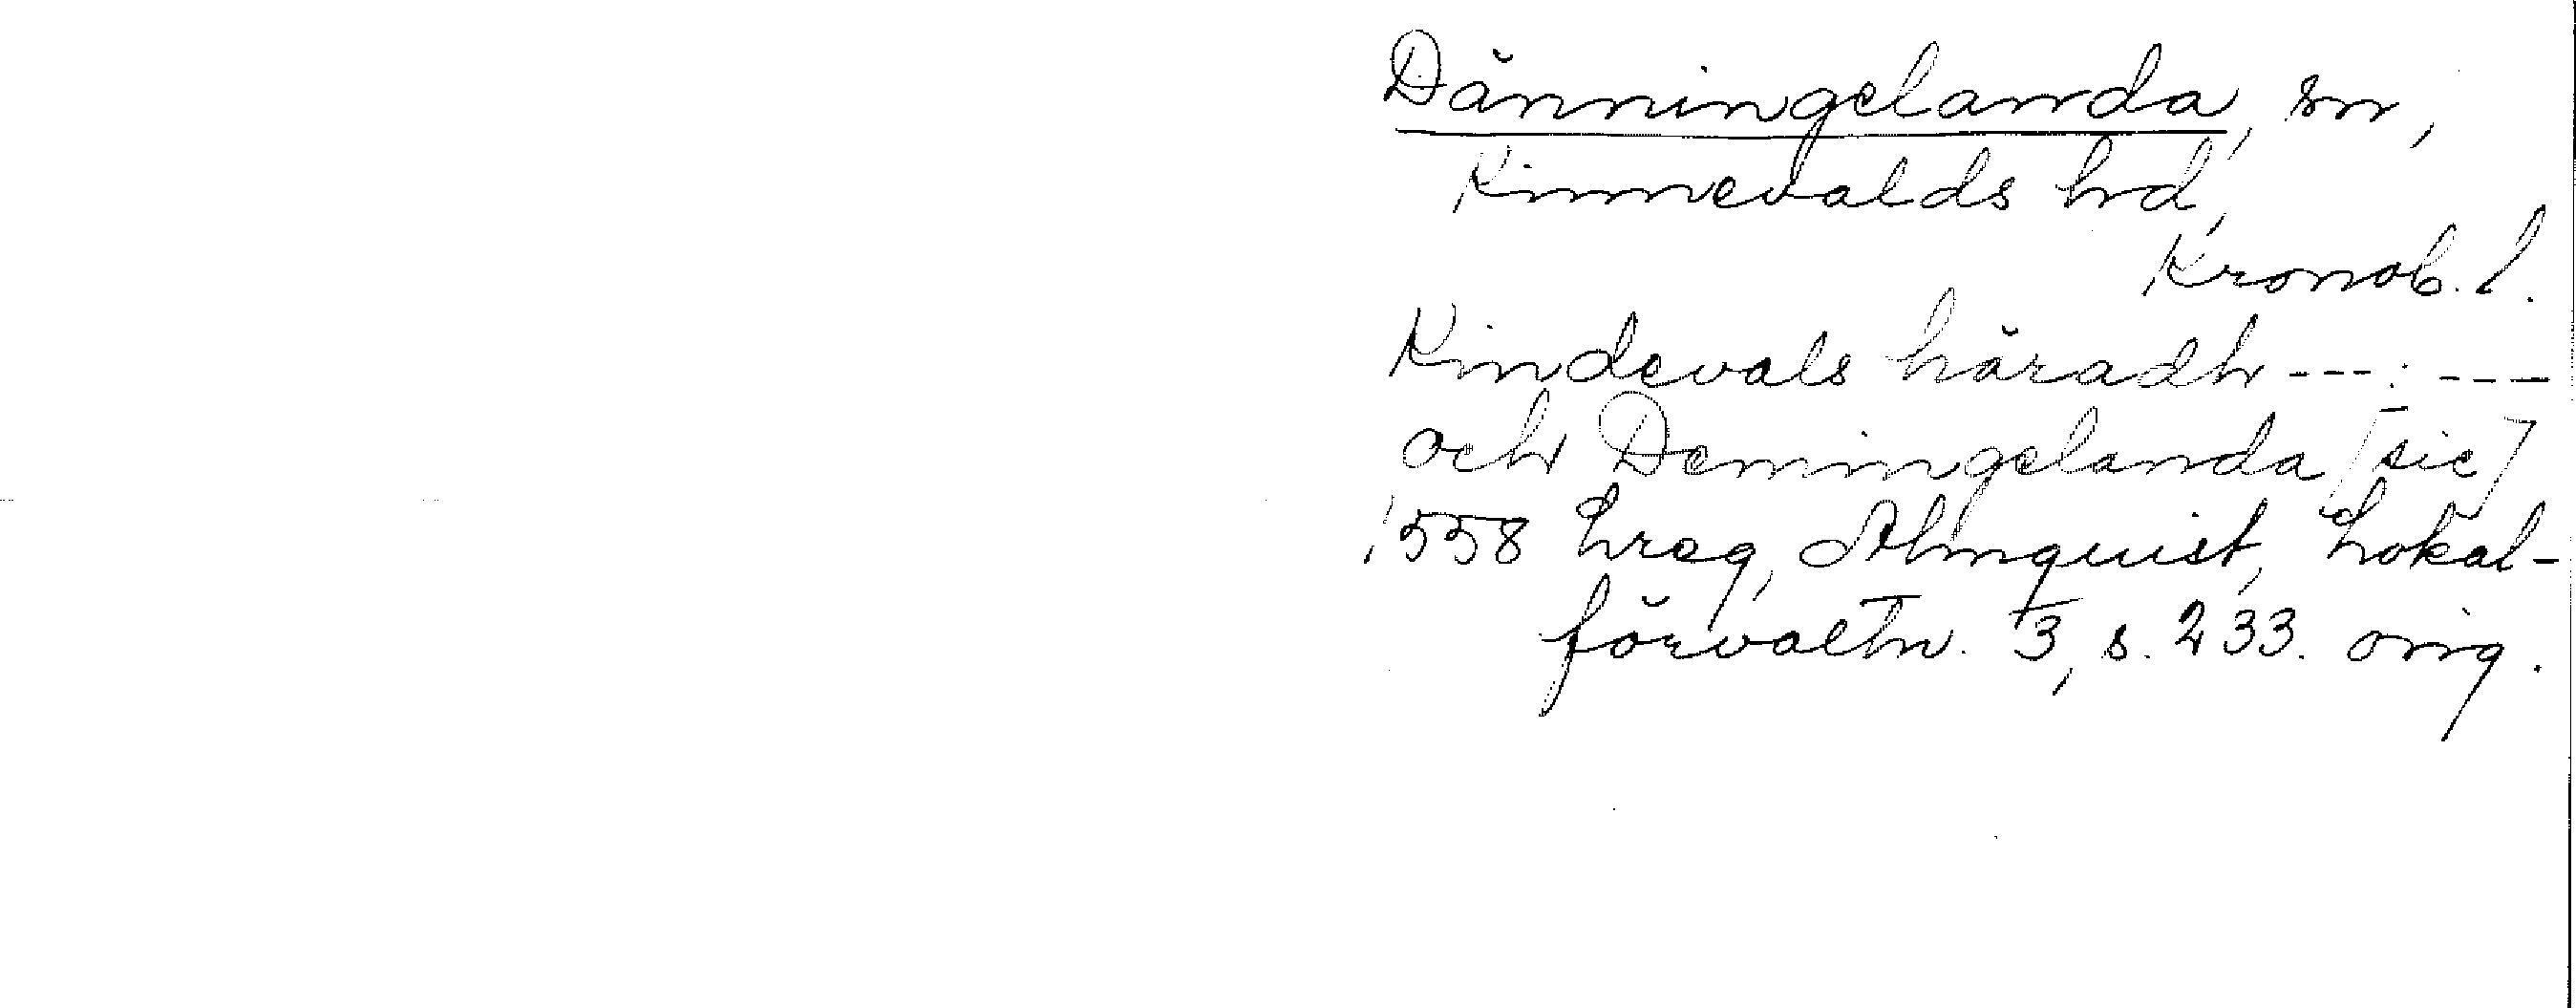 Dänningelanda, sn,
Kinnevalds hd,
Kronob. l.
Kindevals häradh ---: ---
och Demingelanda [sic]
1558 Lreg, Almquist, Lokal-
förvaltn. 3, s. 233. orig.